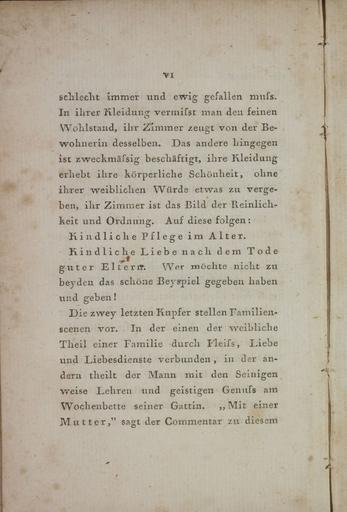 VI
schlecht immer und ewig gefallen muſs.
In ihrer Kleidung vermiſst man den feinen
Wohlstand, ihr Zimmer zeugt von der Be-
wohnerin desselben. Das andere hingegen
ist zweckmäſsig beschäftigt, ihre Kleidung
erhebt ihre körperliche Schönheit, ohne
ihrer weiblichen Würde etwas zu verge-
ben, ihr Zimmer ist das Bild der Reinlich-
keit und Ordnung. Auf diese folgen:
Kindliche Pflege im Alter.
Kindliche Liebe nach dem Tode
guter Eltern. Wer möchte nicht zu
beyden das schöne Beyspiel gegeben haben
und geben!
Die zwey letzten Kupfer stellen Familien-
scenen vor. In der einen der weibliche
Theil einer Familie durch Fleiſs, Liebe
und Liebesdienste verbunden, in der an-
dern theilt der Mann mit den Seinigen
weise Lehren und geistigen Genuſs am
Wochenbette seiner Gattin. „Mit einer
Mutter,” sagt der Commentar zu diesem